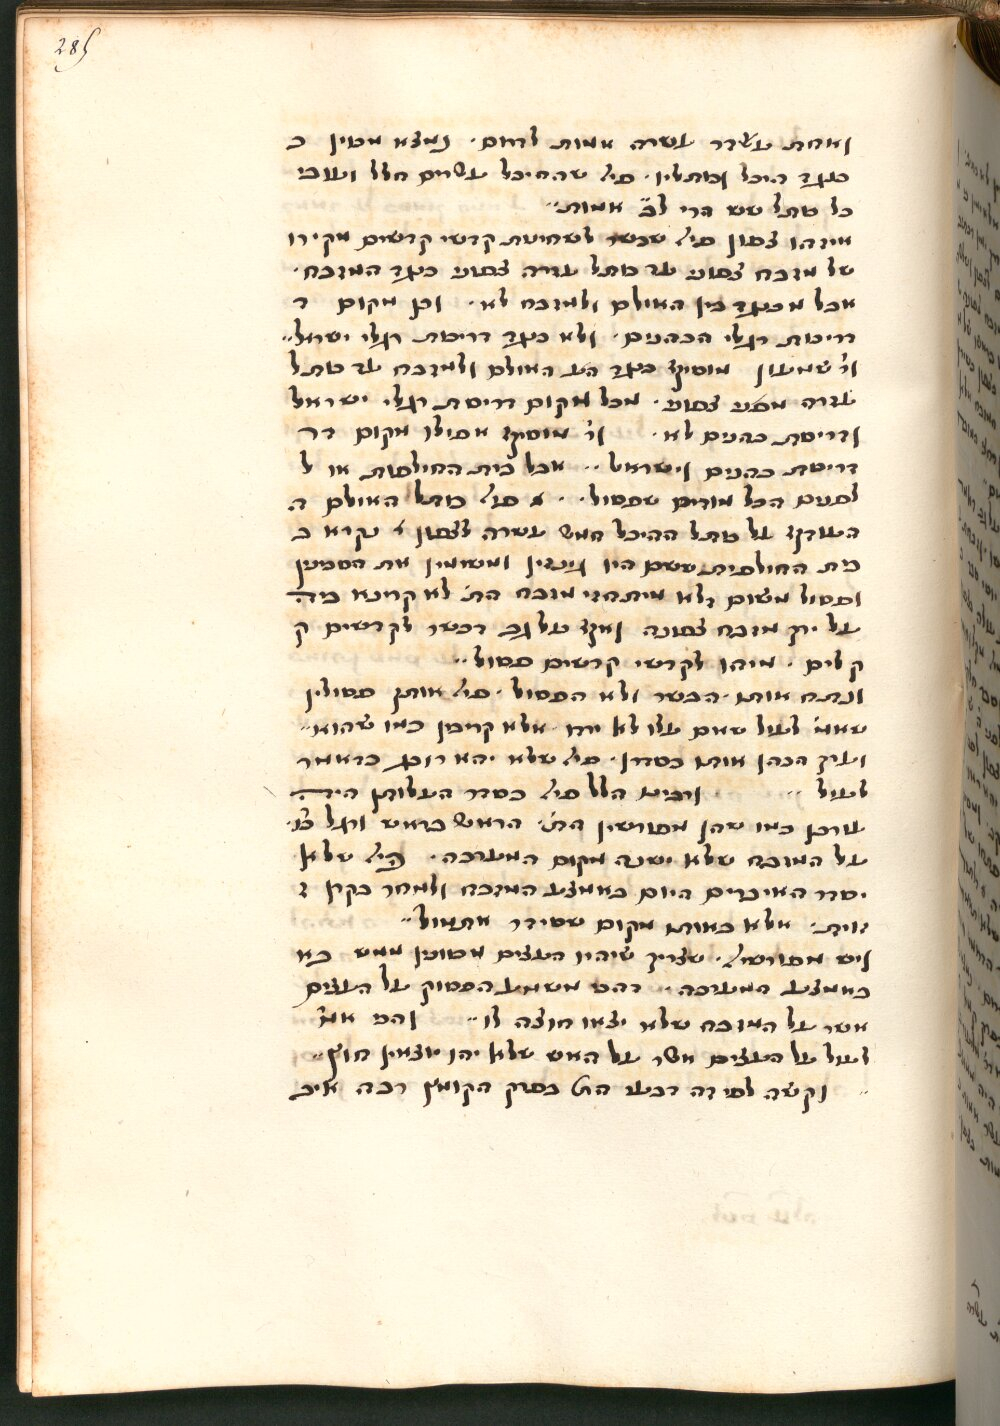 285
ואחת עשרה עשרה אמות לדרום. נמצא מטין כ
כנגד היכל וכותליו. פיל שההיכל עשרים חלל ועובי
כל כותל שש הרי לב אמות״
איזהו צפון פיל שכשר לשחיטת קדשי קדשים מקירו
של מזבח צפוני עד כותל עזרה צפוני כנגד המזבח.
אבל מכנגד בין האולם ולמזבח לא. וכן מקום ד
דריסת רגלי הכהנים. ולא כנגד דריסת רגלי ישראל״
ור׳ שמעון מוסיף כנגד בין האולם ולמזבח עד כותל
עזרה צפוני. אבל מקום דריסת רגלי ישראל
ודריסת כהנים לא. ור׳ מוסיף אפילו מקום דר
דריסת כהנים וישראל״ אבל בית החילפות או ל
לפנים הכל מודים שפסול. פיל כותל האולם ה
העודף על כותל ההיכל חמש עשרה לצפון נקרא ב
בית החילפות ששם היו גונזין את הסכינין
ופסול משום דלא מיתחזי מזבח הת׳ לא קרינא ביה
על ירך מזבח צפונה ואף על גב דכשר לקדשים ק
קלים. מיהו לקדשי קדשים פסול״
ונתח אותו הכשר ולא הפסול. פיל אותן פסולין
שאמ׳ לעיל שאם עלו לא ירדו אלא קריבין כמו שהוא״
וערך הכהן אותם כסדרן. פיל שלא יהא רוכב כדאמר
לעיל״ וכליל הלל פיל כסדר העלותן היה
עורכן כמו שהן מפורשין הת׳. הראש בראש ורגל כו׳.
על המזבח שלא ישנה מקום המערכה. פיל שלא
יסדר האיברים היום באמצע המזבח ולמחר בקרן ז
זוית. אלא באותו מקום שסידר אתמול״
ויש מפורשי׳. שצריך שיהיו העצים מכוונין ממש בא
באמצע המערכה. דהכי משמע הפסוק על העצים
אשר על המזבח שלא יצאו חוצה לו״ והכי אמ׳
לעיל על העצים אשר על האש שלא יהו יוצאין חוץ״
וקשה לפי זה דבעי הת׳ בפרק הקומץ רבה איב